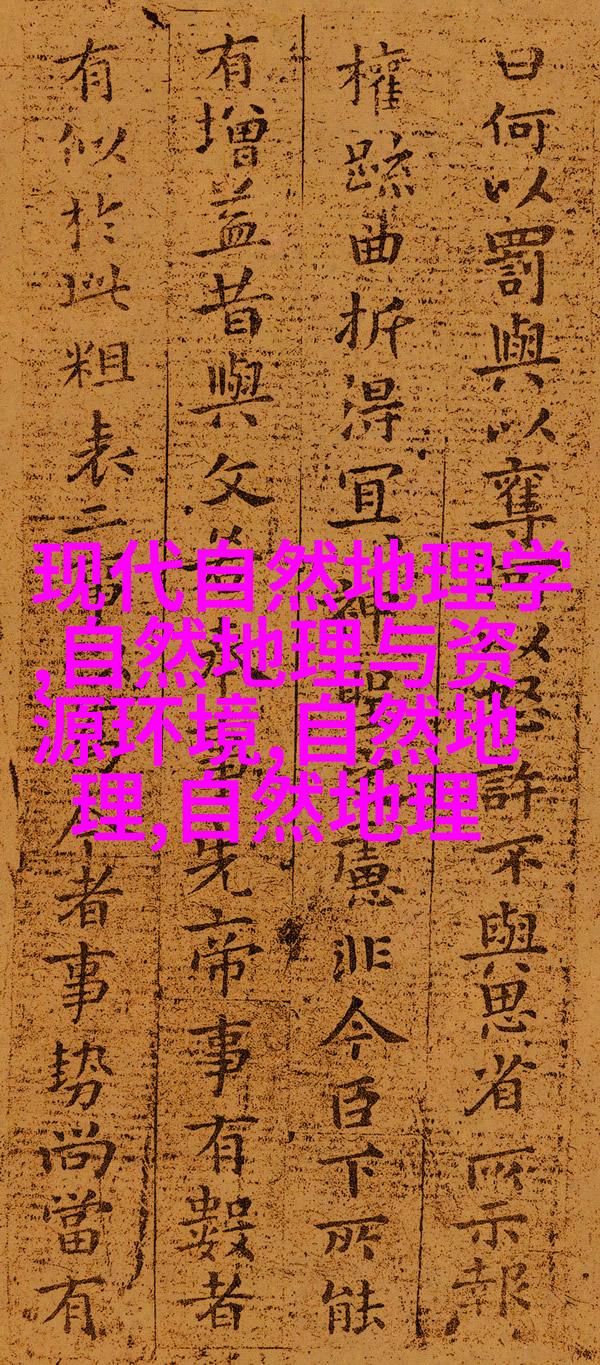 曰何以罰與以奪 以怒許不與思省所示報
權疏曲折得宜 神 慮非今臣下所能
有增益昔與文 事先帝事有數者
有似於此粗表二事 今者事勢尚當有
现代自然地理学
,自然地理与资
源环境,自然地
理,自然地理